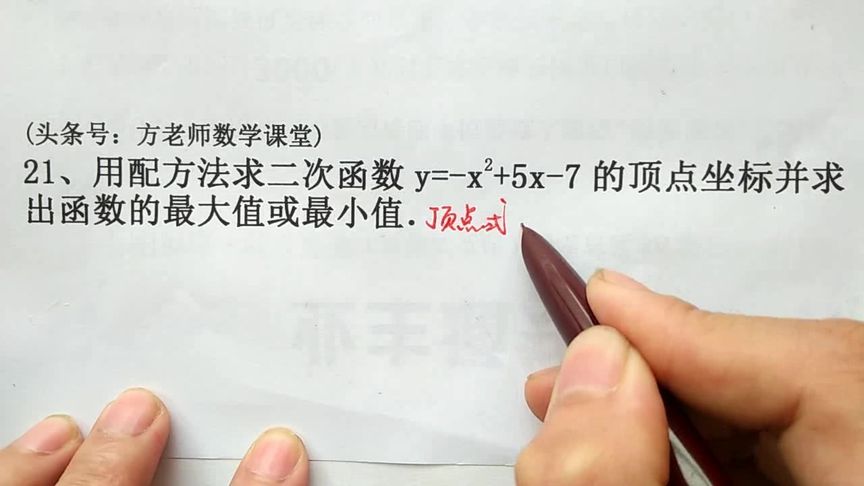 (头条号：方老师数学课堂)
21、用配方法求二次函数 y=-x²+5x-7 的顶点坐标并求
出函数的最大值或最小值. 顶点式